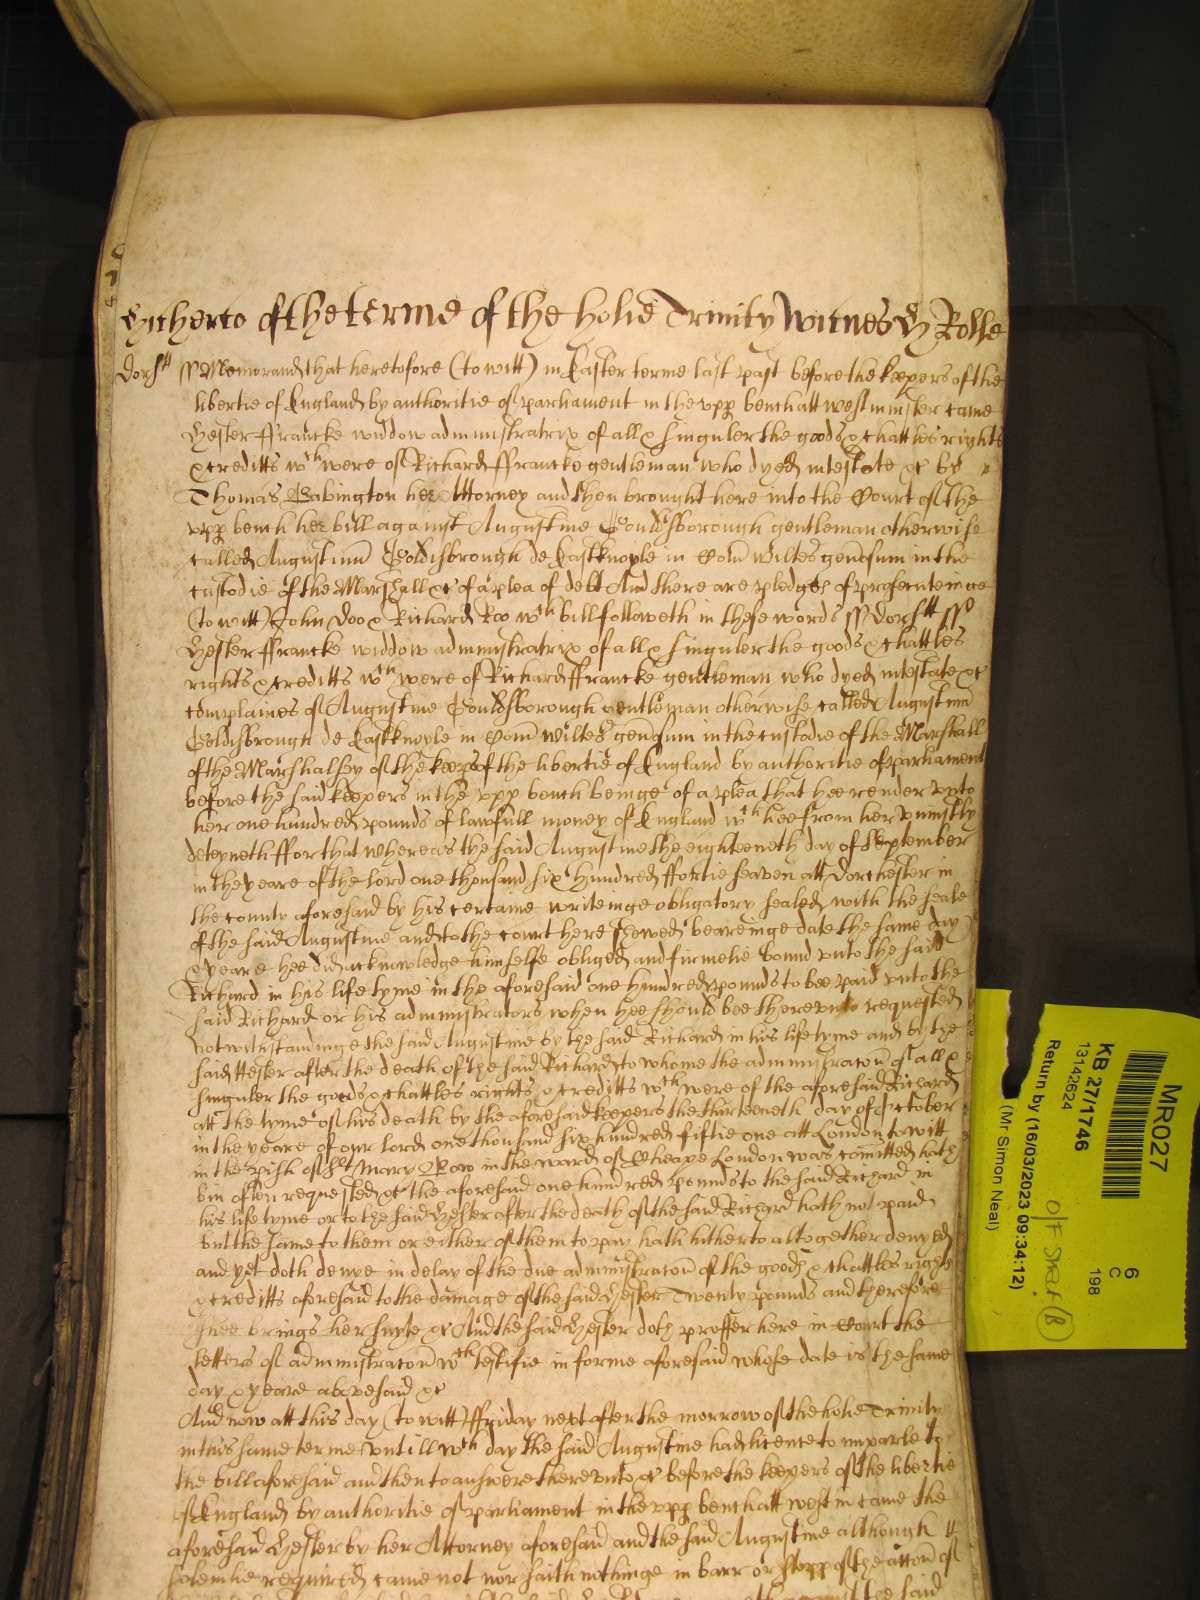 Hitherto of the terme of the holie Trinity Witnes H Rolle
Dorstt ss Memorand that heretofore (to witt) in Easter terme last past before the keepers of the
libertie of England by authoritie of parliament in the upp bench att Westminster came
Hester Francke widdow administratrix of all & singuler the goods & chattles rights
& creditts wch were of Richard Francke gentleman who dyed intestate &c by
Thomas Babington her Attorney and then brought here into the Court of the
upp bench her bill against Augustine Gouldsborough gentleman otherwise
called Augustinu Goldisbrough de Eastknoyle in Com Wiltes generosum in the
custodie of the Marshall &c of a plea of debt And there are pledges of prosecuteinge
(to witt) John Doo & Richard Roo wch bill followeth in these words ss Dorstt ss
Hester Francke widdow administratrix of all & singuler the goods & chattles
rights & creditts wch were of Richard Francke gentleman who dyed intestate &c
complaines of Augustine Gouldsborough gentleman otherwise called Augustinu
Goldisbrough de Eastknoyle in Com Wiltes generosum in the custodie of the Marshall
of the Marshalsey of the keepers of the libertie of England by authoritie of parliament
before the said keepers in the upp bench beinge of a plea that hee render unto
her one hundred pounds of lawfull money of England wch hee from her uniustly
deteyneth For that whereas the said Augustine the eighteeneth day of September
in the yeare of the lord one thousand six hundred fortie seaven att Dorchester in
the county aforesaid by his certaine writeinge obligatory sealed with the seale
of the said Augustine and to the court here shewed beareinge date the same day
& yeare hee did acknowledge himselfe obliged and firmelie bound unto the said
Richard in his life tyme in the aforesaid one hundred pounds to bee paid unto the
said Richard or his administrators when hee should bee thereunto requested
notwithstandinge the said Augustine by the said Richard in his life tyme and by the
said Hester after the death of the said Richard to whome the administracon of all &
singuler the goods & chattles rights & creditts wch were of the aforesaid Richard
att the tyme of his death by the aforesaid keepers the thirteeneth day of October
in the yeare of our lord one thousand six hundred fiftie one att London to witt
in the pish of St Mary Bow in the ward of Cheape London was comitted hath
bin often requested &c the aforesaid one hundred pounds to the said Richard in
his life tyme or to the said Hester after the death of the said Richard hath not paid
but the same to them or either of them to pay hath hitherto altogether denyed
and yet doth denye in delay of the due administracon of the goods & chattles rights
& creditts aforesaid to the damage of the said Hester Twenty pounds and therefore
shee brings her suyte &c And the said Hester doth proffer here in Court the
letters of administracon wch testifie in forme aforesaid whose date is the same
day & yeare abovesaid &c
And now att this day (to witt) Fryday next after the morrow of the holie Trinity
in this same terme untill wch day the said Augustine had licence to imparle to
the bill aforesaid and then to answere thereunto &c before the keepers of the libertie
of England by authoritie of parliament in the upp bench att Westm came the
aforesaid Hester by her Attorney aforesaid and the said Augustine although
solemlie required came not nor saith nothinge in barr or stopp of the accon of
MR027
KB 27/1746
13142624
Return by (16/03/2023 09:34:12)
(Mr Simon Neal)
6
C
198